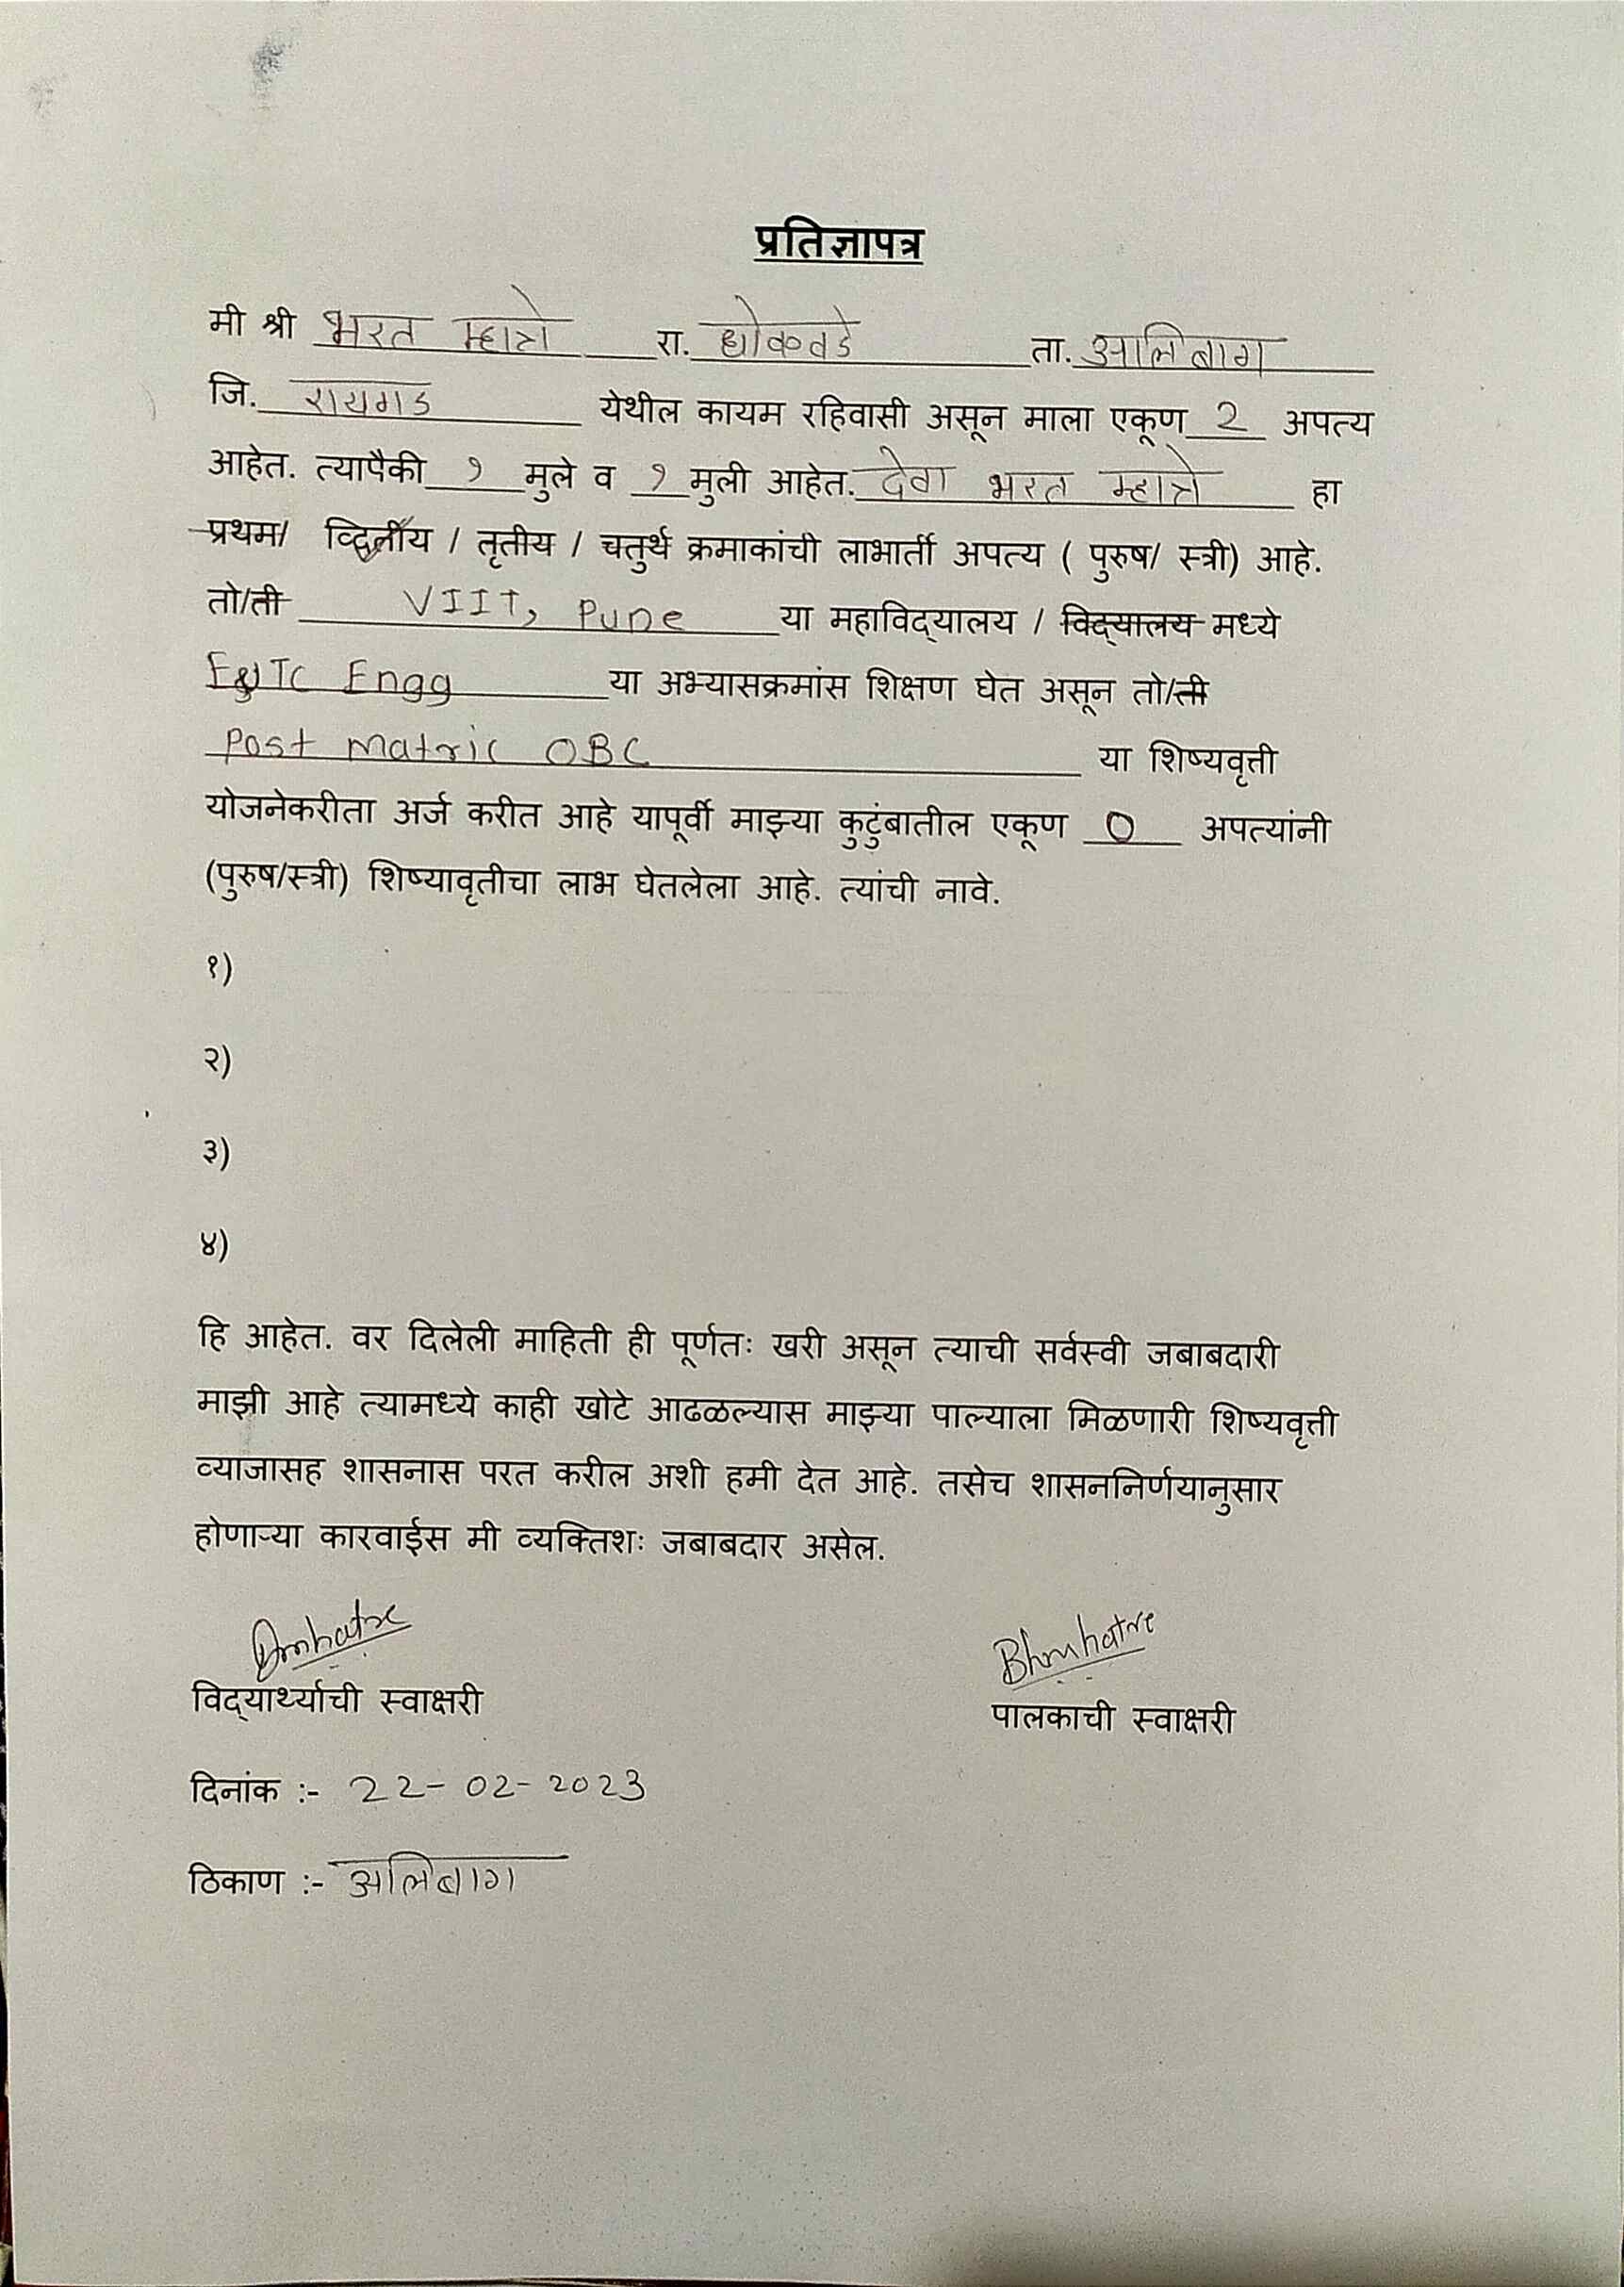 प्रतिज्ञापत्र
मी श्री भरत म्हात्रे रा. धोकवडे ता. अलिबाग
जि. रायगड येथील कायम रहिवासी असून माला एकूण 2 अपत्य
आहेत. त्यापैकी १ मुले व १ मुली आहेत. देवा भरत म्हात्रे हा
प्रथम/ व्दितीय / तृतीय / चतुर्थ क्रमाकांची लाभार्ती अपत्य ( पुरुष/ स्त्री) आहे.
तो/ती VIIT, Pune या महाविद्यालय / विद्यालय मध्ये
E&TC Engg या अभ्यासक्रमांस शिक्षण घेत असून तो/ती
Post Matric OBC या शिष्यवृत्ती
योजनेकरीता अर्ज करीत आहे यापूर्वी माझ्या कुटुंबातील एकूण 0 अपत्यांनी
(पुरुष/स्त्री) शिष्यावृतीचा लाभ घेतलेला आहे. त्यांची नावे.
१)
२)
३)
४)
हि आहेत. वर दिलेली माहिती ही पूर्णतः खरी असून त्याची सर्वस्वी जबाबदारी
माझी आहे त्यामध्ये काही खोटे आढळल्यास माझ्या पाल्याला मिळणारी शिष्यवृत्ती
व्याजासह शासनास परत करील अशी हमी देत आहे. तसेच शासननिर्णयानुसार
होणाऱ्या कारवाईस मी व्यक्तिशः जबाबदार असेल.
Dmhatre Bhmhatre
विद्यार्थ्याची स्वाक्षरी पालकाची स्वाक्षरी
दिनांक :- 22-02-2023
ठिकाण :- अलिबाग